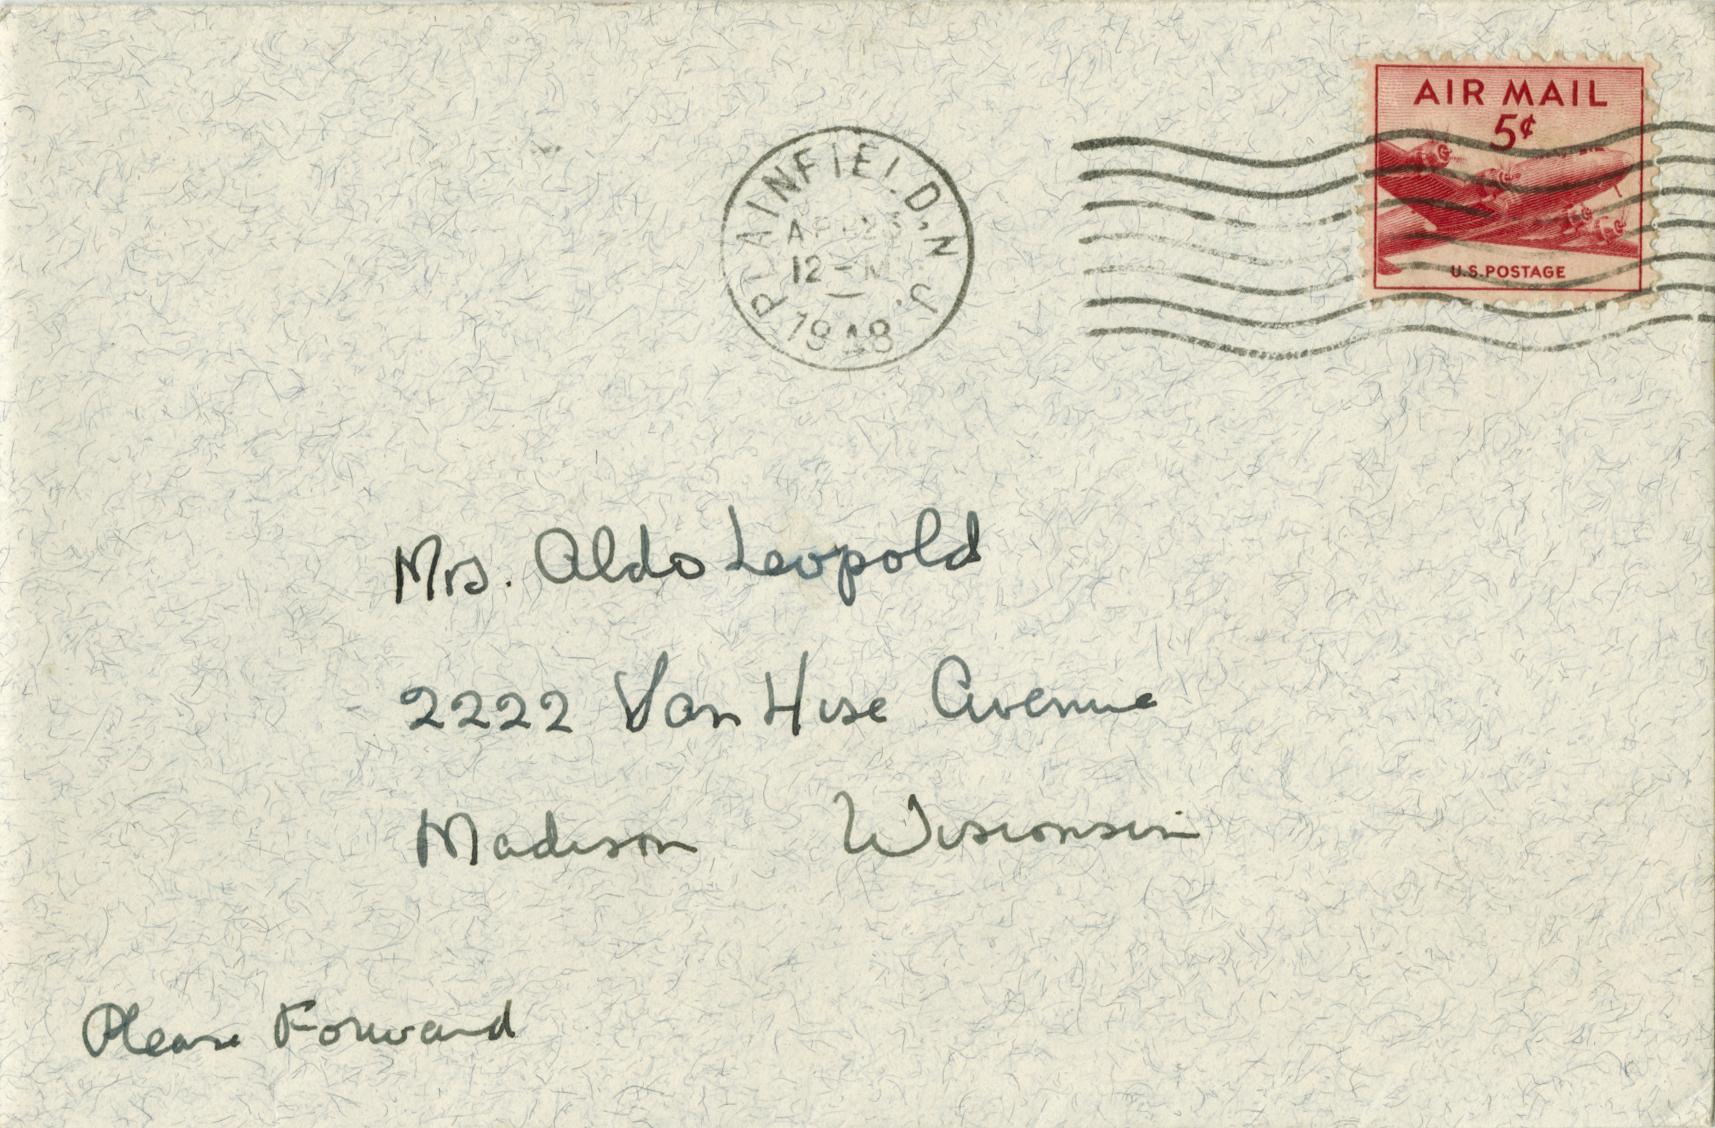 AIR MAIL
5¢
U.S. POSTAGE
PLAINFIELD, N.J.
APR 23
12 - M
1948
Mrs. Aldo Leopold
2222 Van Hise Avenue
Madison Wisconsin
Please Forward